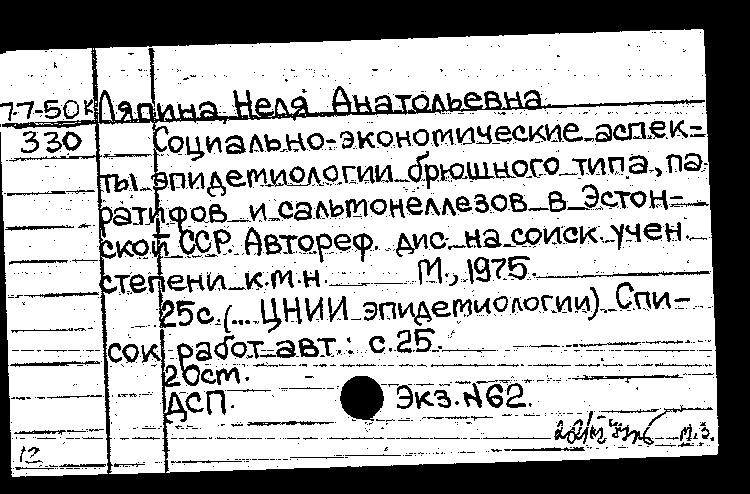 77-50к Ляпина, Неля Анатольевна.
330 Социально-экономические аспек=
ты эпидемиологии брюшного типа, па-
ратифов и сальмонеллезов в Эстон=
ской ССР. Автореф. дис. на соиск. учен.
степени к.м.н. М., 1975.
25с. (... ЦНИИ эпидемиологии) Спи-
сок работ авт.: с.25.
20см.
ДСП. Экз. №62.
м.з.
12